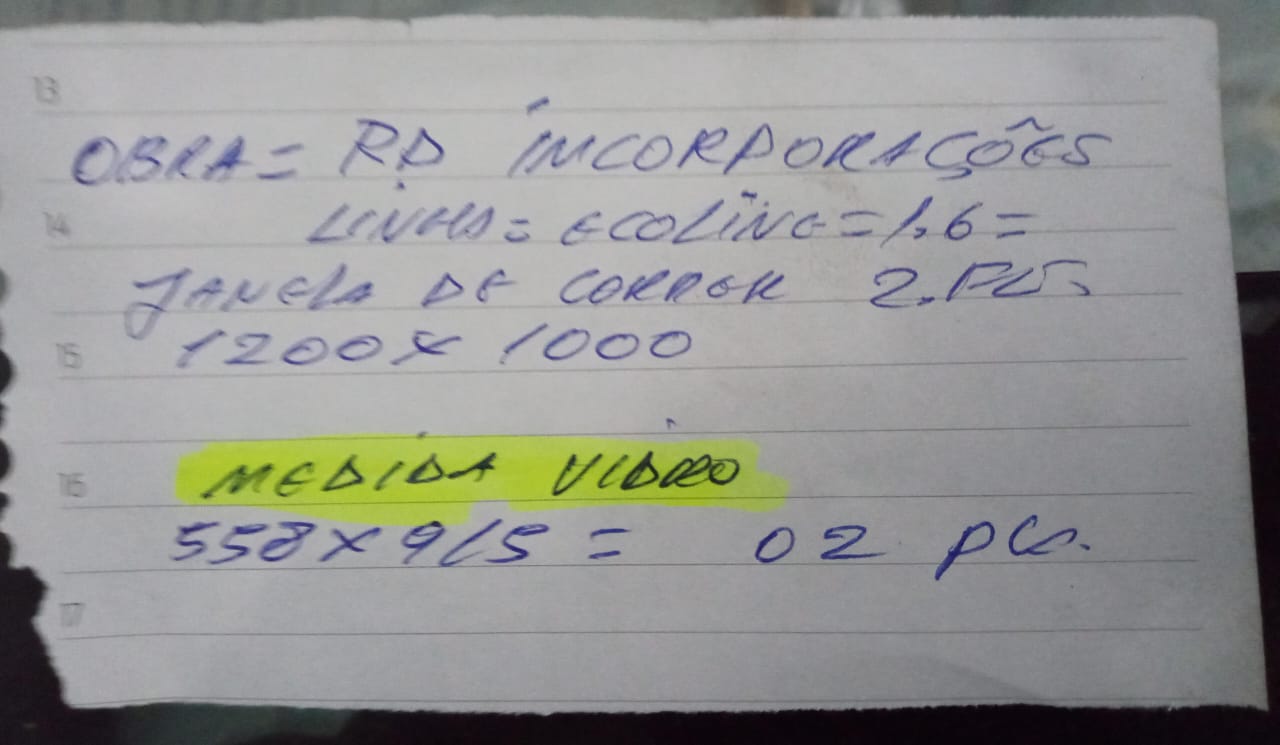 13
OBRA = RD INCORPORAÇÕES
14
LINHA = ECOLINE = 1,6 =
JANELA DE CORRER 2.FLS
15
1200 X 1000
16
MEDIDA VIDRO
558 X 915 = 02 PÇS.
17